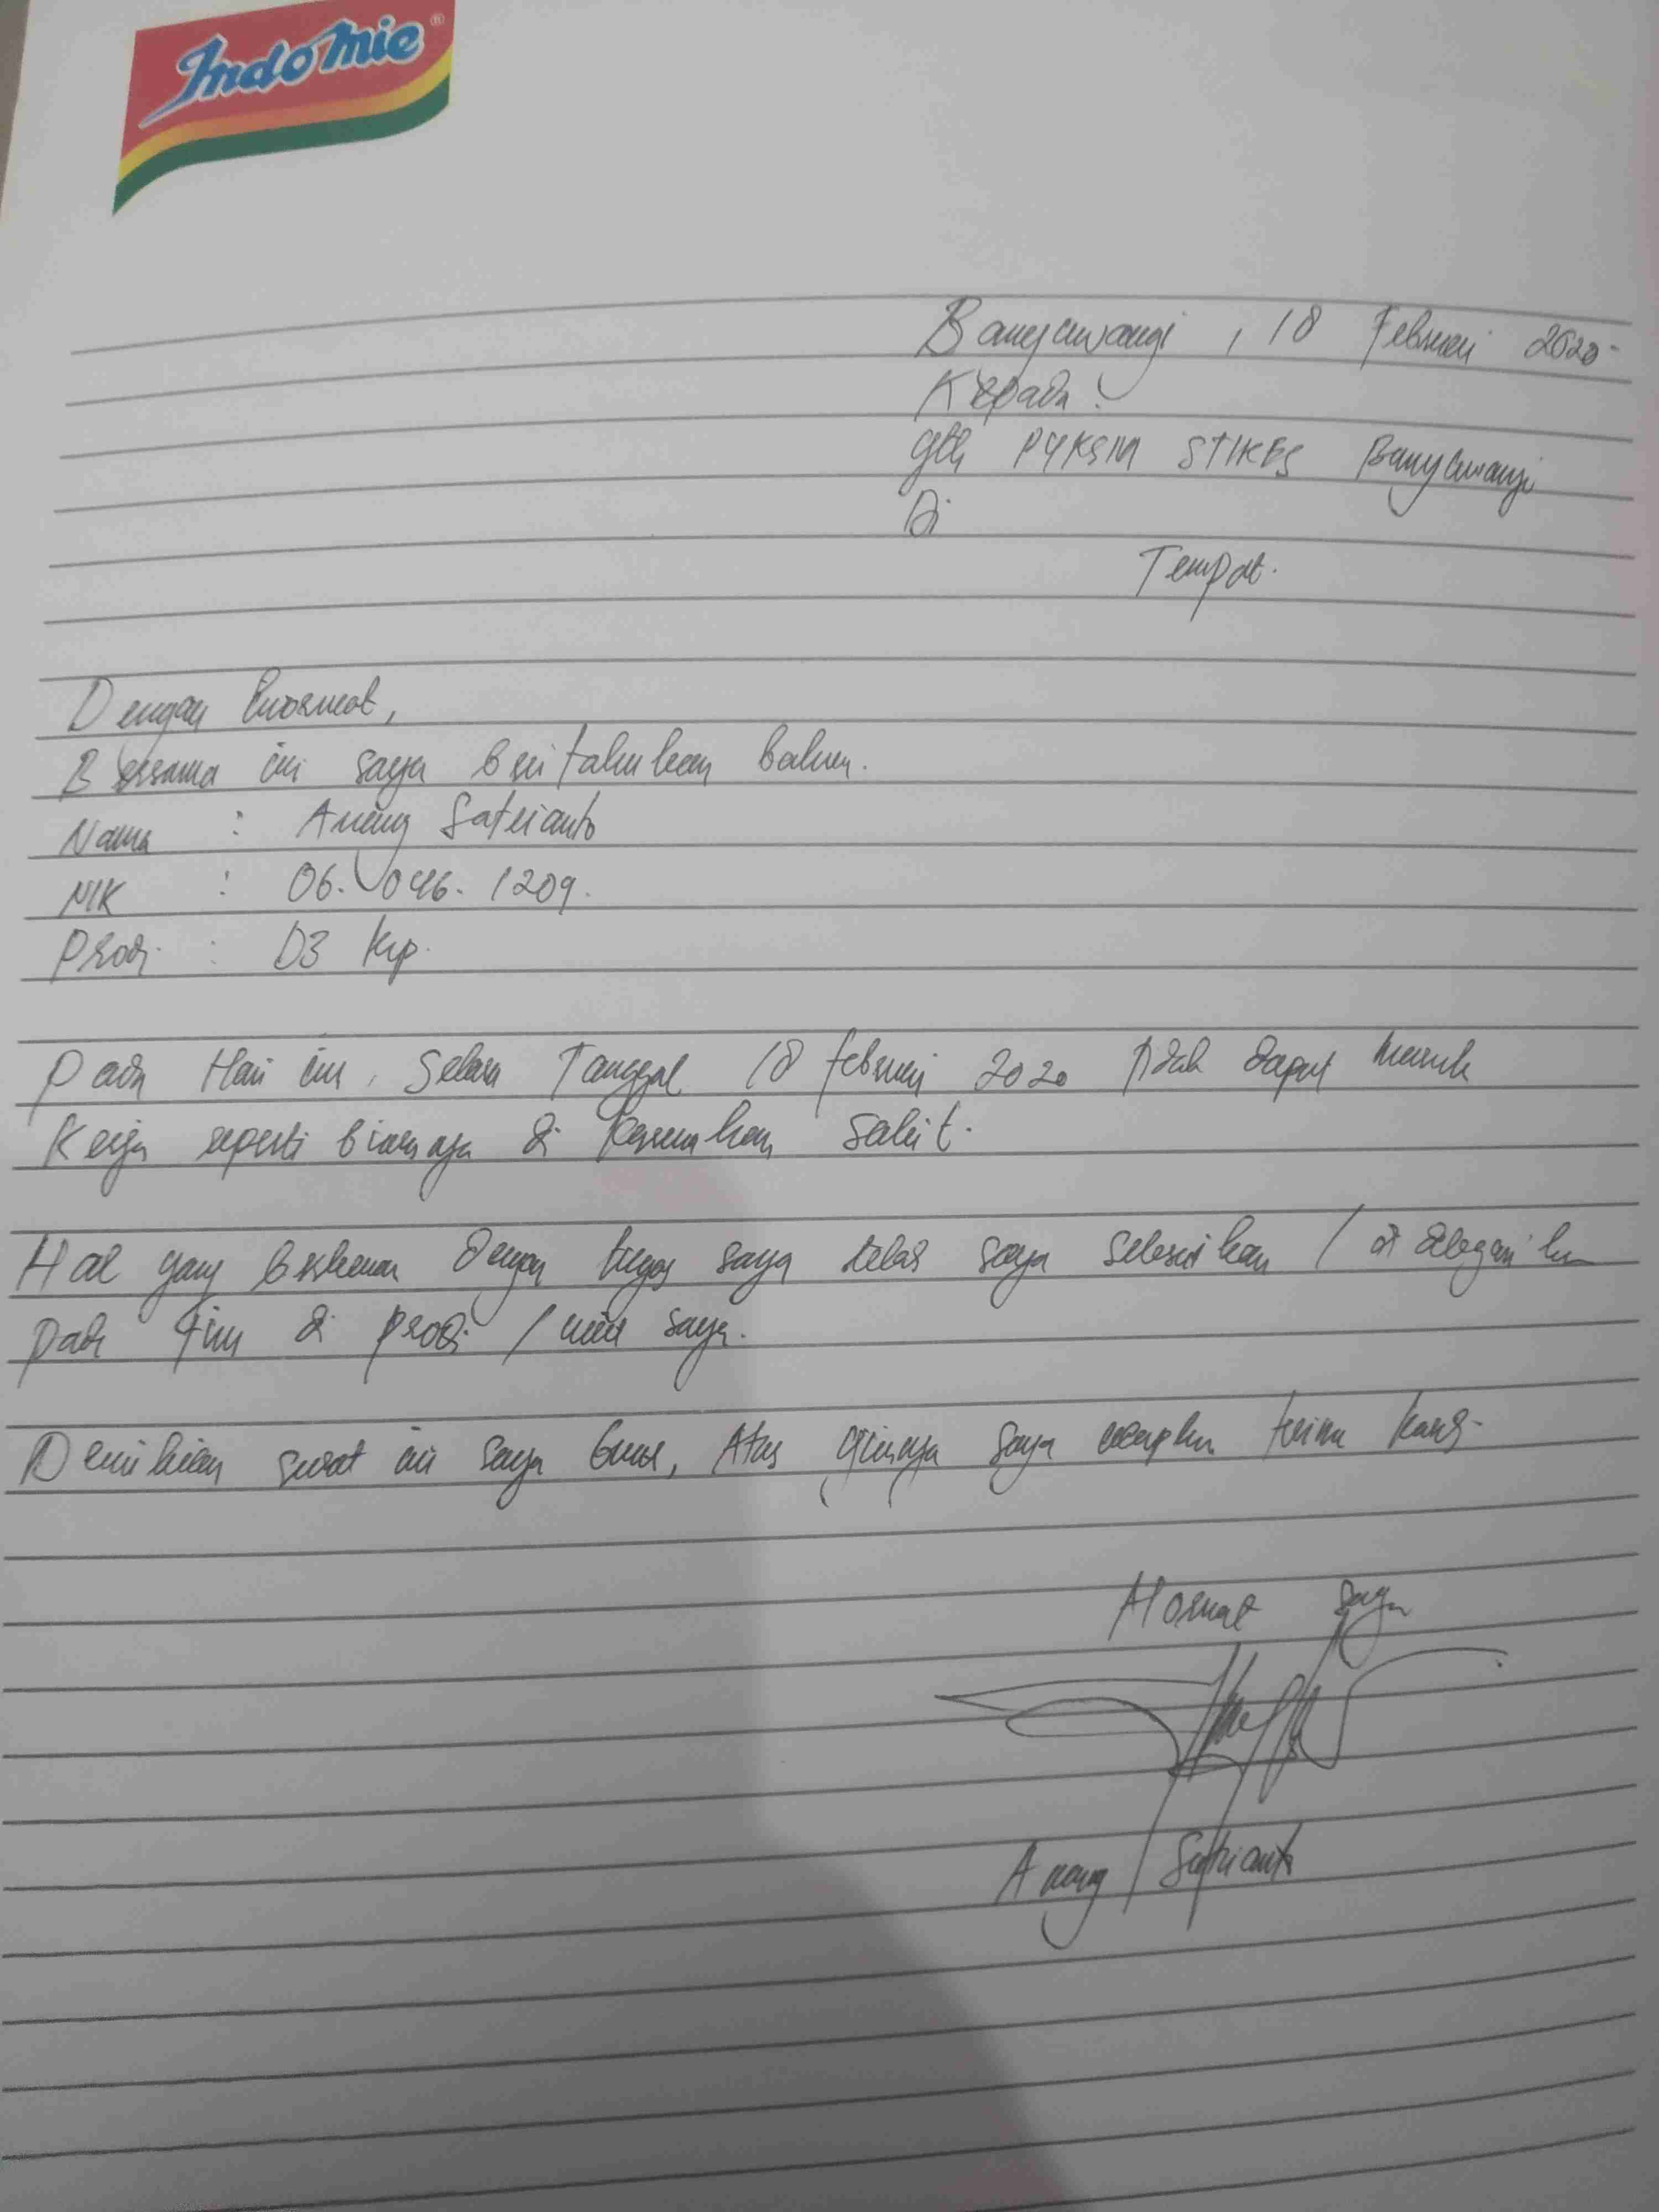 Indomie®
Banyuwangi, 18 Februari 2020
Kepada :
Yth STIKES Banyuwangi
Di
Tempat.
Dengan hormat,
Bersama ini saya beritahukan bahwa.
Nama : Anang Satrianto
NIK : 06. 046. 1209.
Prodi : D3 Kep.
Pada Hari ini, Selasa Tanggal 18 februari 2020 tidak dapat masuk
Kerja seperti biasanya di karenakan sakit.
Hal yang berkenaan dengan tugas saya telah saya selesaikan / di delegasikan
pada tim di prodi / unit saya.
Demikian surat ini saya buat, Atas saya ucapkan terima kasih.
Hormat saya
Anang Satrianto